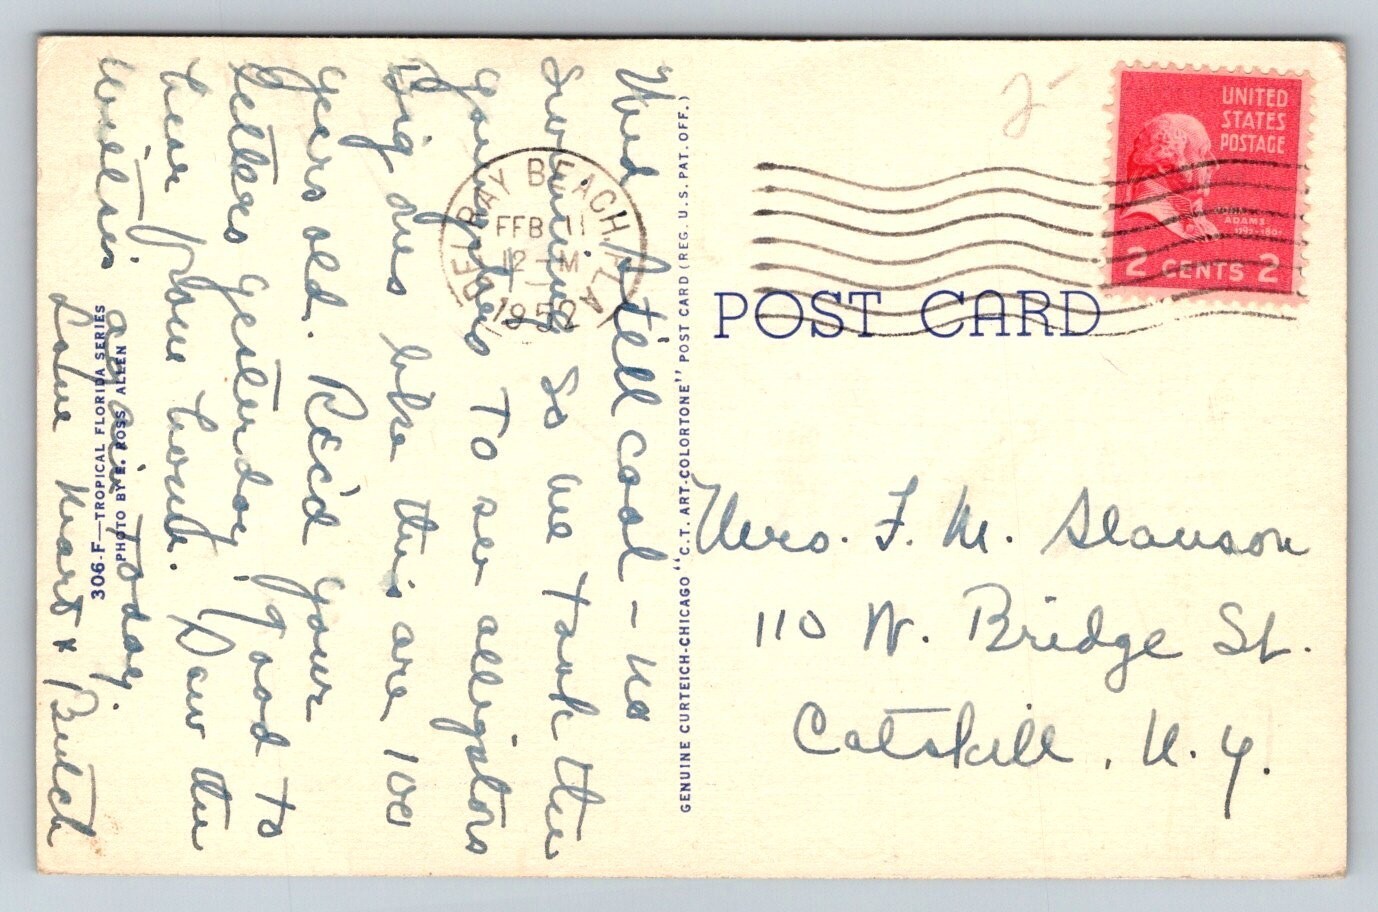 Wed. Still cool - no
swimming so we took the
youngsters to see alligators
Big ones like this are 100
years old. Rec'd your
letters yesterday good to
hear from home. Saw the
again today.
Love Mart & Butch
306-F—TROPICAL FLORIDA SERIES
PHOTO BY E. ROSS ALLEN
DELRAY BEACH FLA
FEB 11
12-M
1952
GENUINE CURTEICH-CHICAGO "C.T. ART-COLORTONE" POST CARD (REG. U.S. PAT. OFF.)
2-
UNITED
STATES
POSTAGE
JOHN
ADAMS
1797-1801
2 CENTS 2
POST CARD
Mrs. F. M. Slauson
110 W. Bridge St.
Catskill, N.Y.